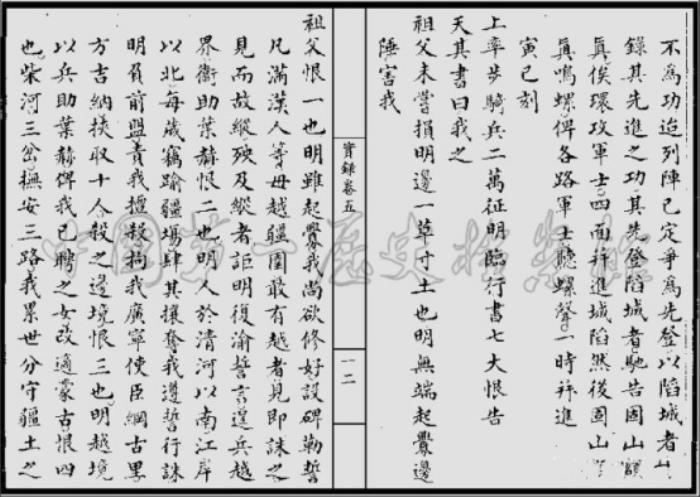 不為功迨列陣已定爭為先登以陷城者
錄其先進之功其先登陷城者馳告固山額
眞俟環攻軍士四面并進城陷然後固山
眞鳴螺俾各路軍士聽螺聲一時并進
寅巳刻
上率步騎兵二萬征明臨行書七大恨告
天其書曰我之
祖父未嘗損明邊一草寸土也明無端起釁邊
陲害我
實錄卷五
一二
祖父恨一也明雖起釁我尚欲修好設碑勒誓
凡滿漢人等毋越疆圉敢有越者見即誅之
見而故縱殃及縱者詎明復渝誓言逞兵越
界衛助葉赫恨二也明人於清河以南江岸
以北每歲竊踰疆場肆其攘奪我遵誓行誅
明負前盟責我擅殺拘我廣寧使臣綱古里
方吉納挾取十人殺之邊境恨三也明越境
以兵助葉赫俾我已聘之女改適蒙古恨四
也柴河三岔撫安三路我累世分守疆土之
中國第一歷史檔案館